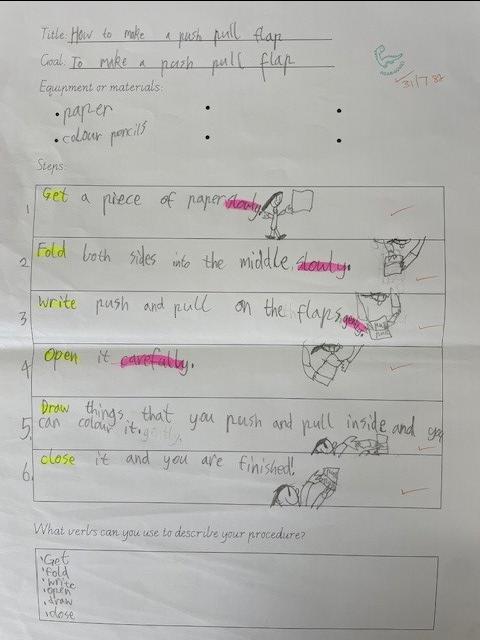 Title: How to make a push pull flap
Goal: To make a push pull flap
Equipment or materials:
• paper
• colour pencils
Steps:
1 Get a piece of paper slouly.
2 Fold both sides into the middle slouly.
3 Write push and pull on the flaps
4 Open it carefully.
5. Draw things that you push and pull inside and you
can colour it. gently.
6. close it and you are finished!
What verbs can you use to describe your procedure?
• Get
• fold
• write
• open
• draw
• close